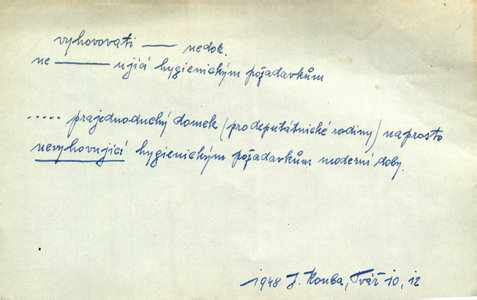 vyhovovati — nedok.
ne — ující hygienickým požadavkům
..... prajednoduchý domek (pro deputátnické rodiny) naprosto
nevyhovující hygienickým požadavkům moderní doby.
1948 J. Kouba, Tvář 10, 12